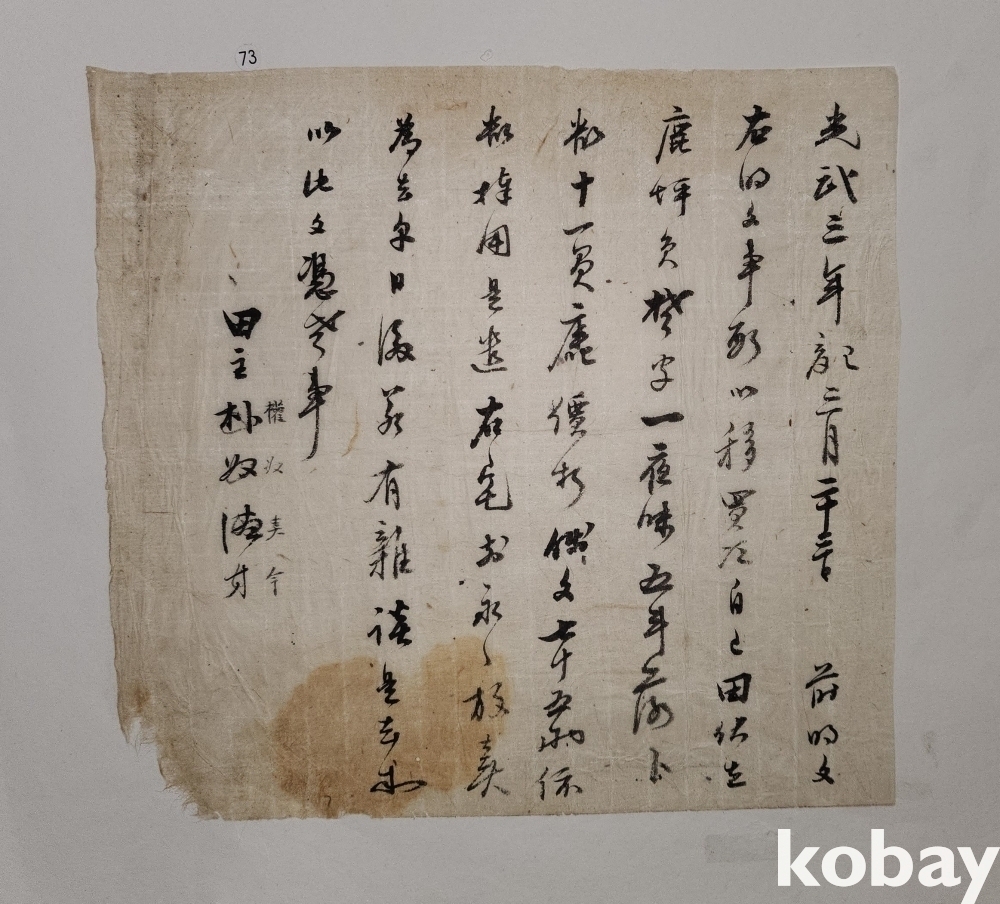 73
光武三年己亥三月二十二日 前明文
右明文事段以移買次自己田伏在
鹿坪員楚字一夜味五斗落卜
數十一負庫價折錢文七十五兩依
數捧用是遣右宅前永永放賣
爲去乎日後若有雜談是去乃
以此文憑考事
田主朴奴德才
權奴 今
kobay